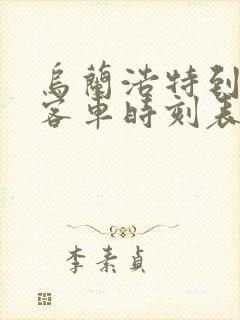 烏蘭浩特到
客車時刻表
李素貞